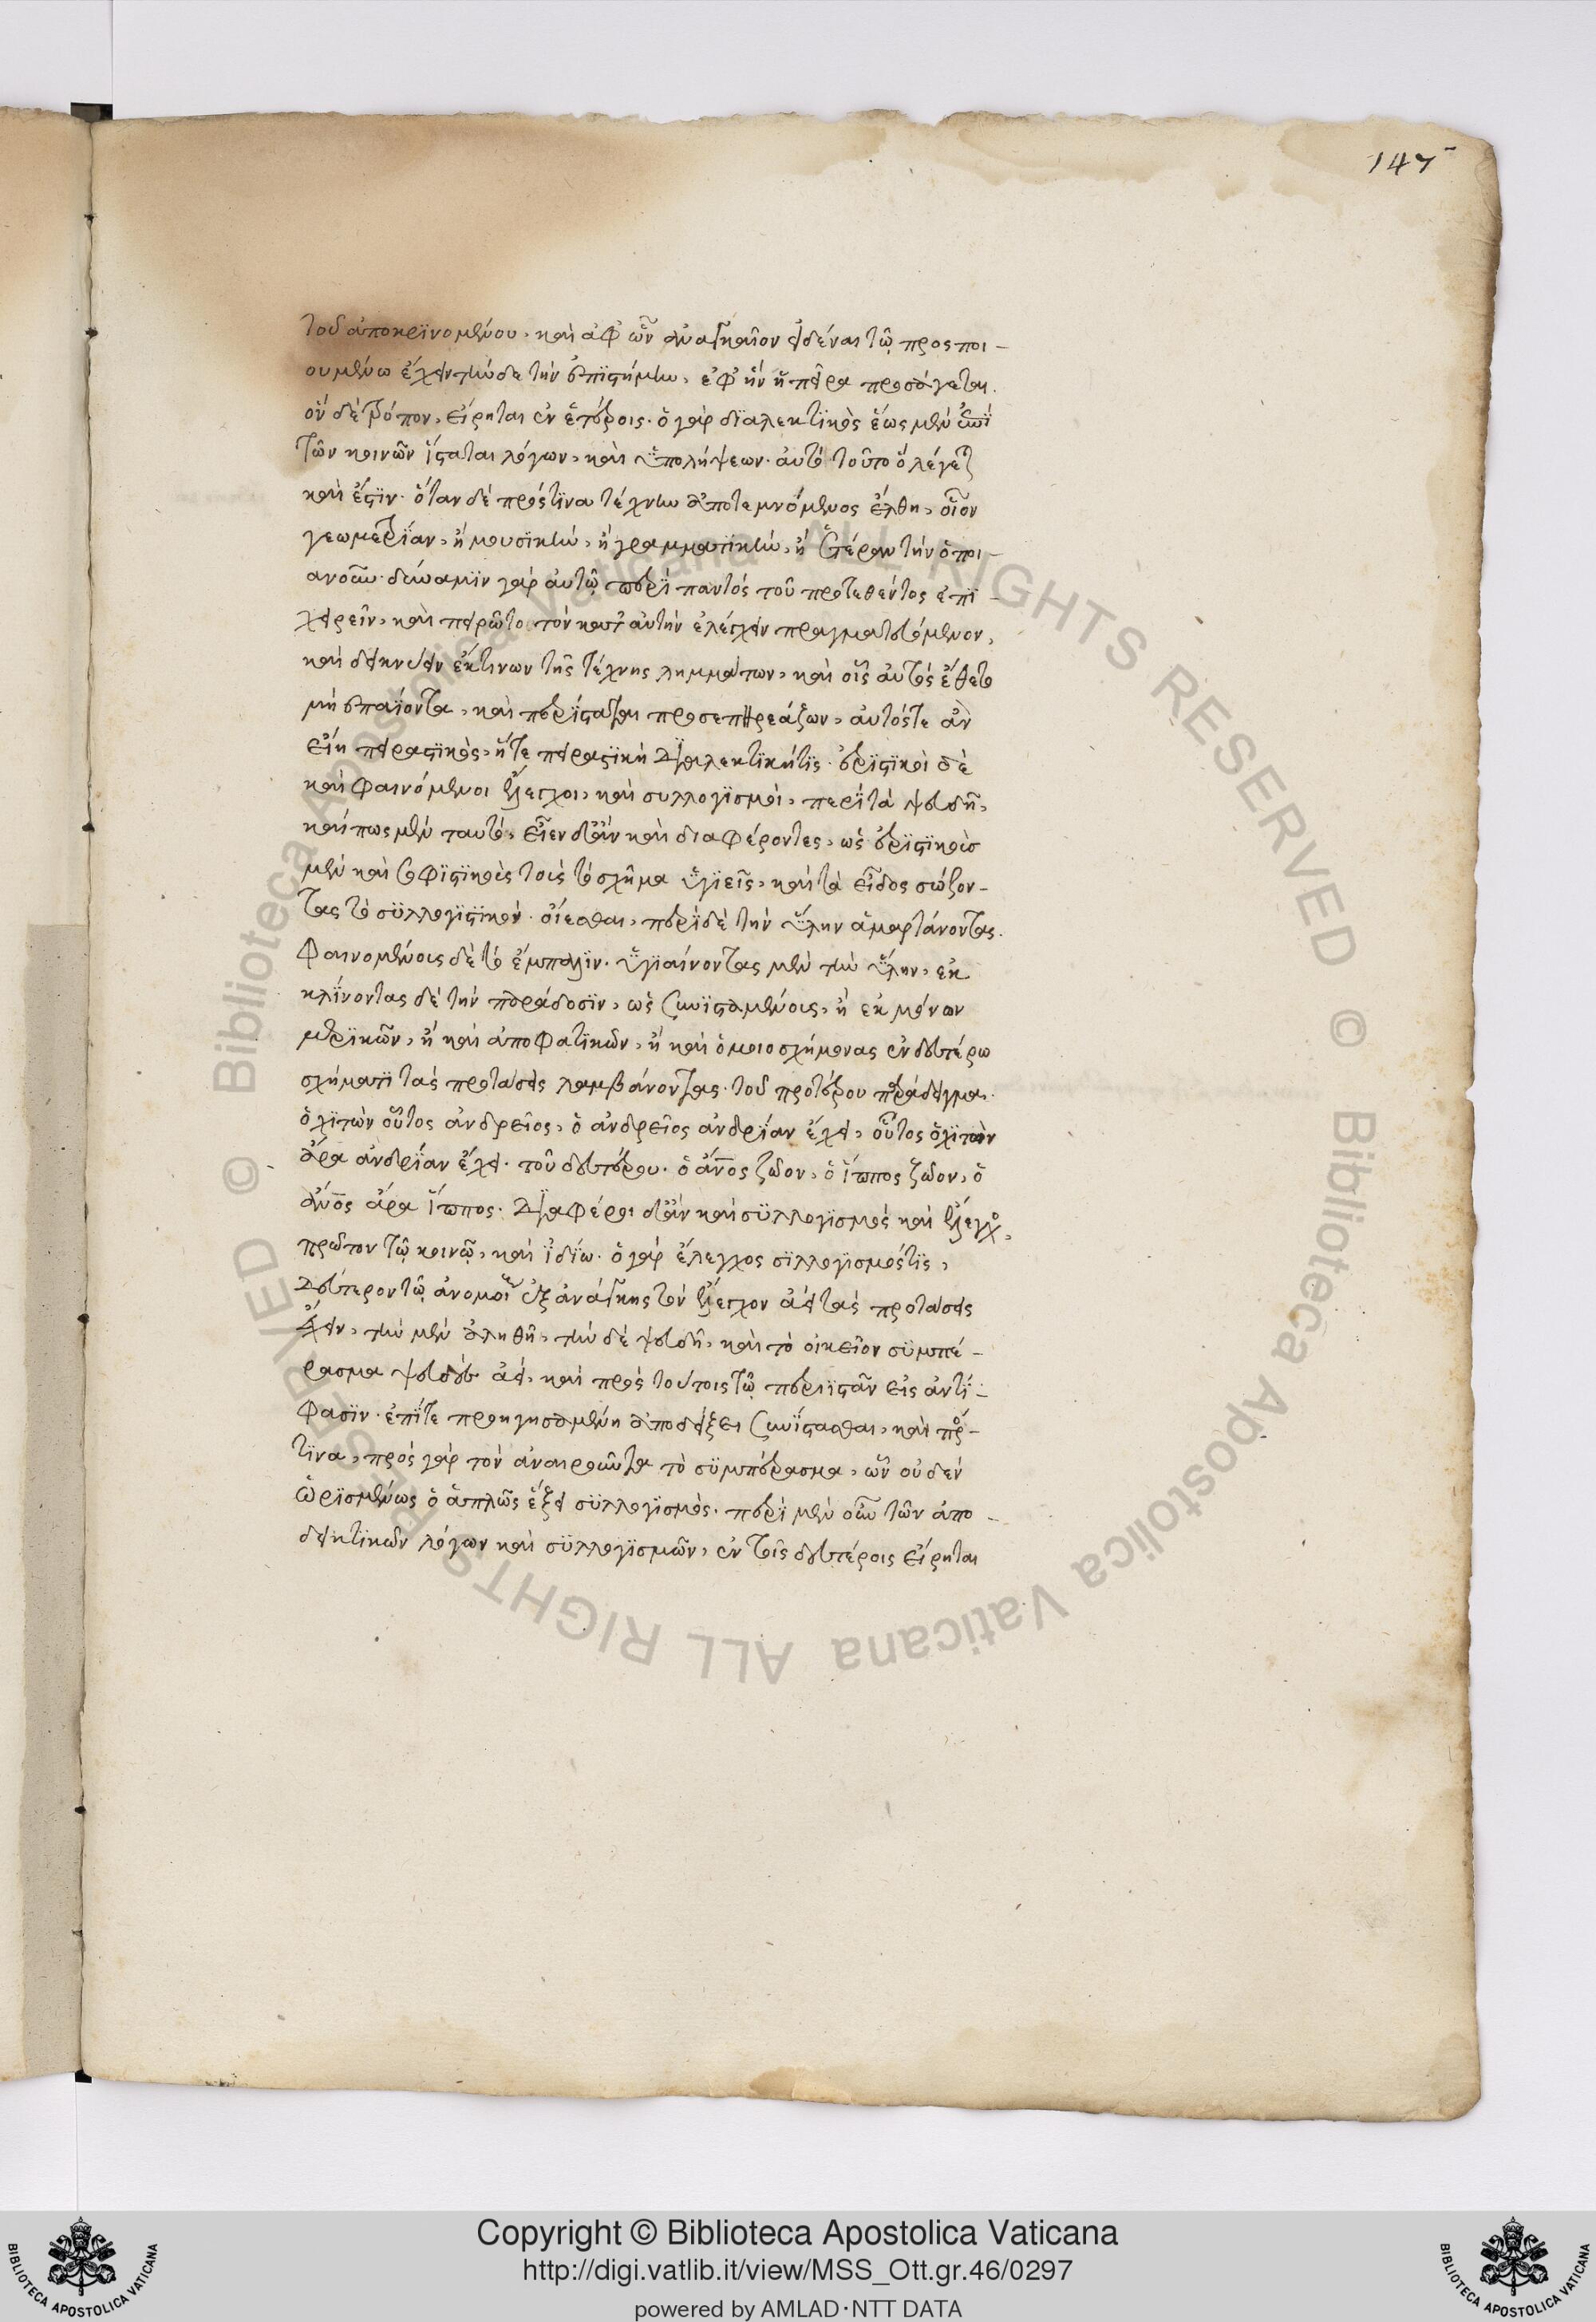 147
τοῦ ἀποκρϊνομένου, καὶ ἀφ᾽ ὧν ἀναγκαῖον εἰδέναι τῷ προσποι-
ουμένω ἔχειν τήνδε τὴν ἐπϊστήμην, ἐφ᾽ ἣν ἡ πεῖρα προσάγεται.
ὃν δὲ τρόπον, εἴρηται ἐν ἑτέροις. ὁ γὰρ δϊαλεκτϊκὸς ἕως μὲν ἐπὶ
τῶν κοινῶν ἵσταται λόγων, καὶ ὑπολήψεων. αὐτὸ τοῦτο ὃ λέγεται
καὶ ἔστϊν. ὅταν δὲ πρός τϊνα τέχνην ἀποτεμνόμενος ἔλθη, οἷον
γεωμετρΐαν, ἢ μουσϊκὴν, ἢ γραμματϊκὴν, ἢ ἑτέραν τὴν ὁποι-
ανοῦν. δύναμϊν γὰρ αὐτῷ περὶ παντός τοῦ προτεθέντος ἐπϊ-
χειρεῖν, καὶ πειρῶτο τὸν κατ᾽ αὐτὴν ἐλέγχειν πραγματευόμενον,
καὶ δεικνύειν ἔκ τινων τῆς τέχνης λημμάτων, καὶ οἷς αὐτὸς ἔθετο
μὴ ἐπαΐοντα, καὶ περιΐστασθαι προσεπηρεάζων, αὐτός τε ἂν
εἴη πειραστϊκὸς, ἥ τε πειραστϊκὴ δϊαλεκτϊκή τϊς. ἐρϊστϊκοὶ δὲ
καὶ φαινόμενοι ἔλεγχοι, καὶ συλλογϊσμοὶ, περὶ τὰ ψευδῆ,
καί πως μὲν ταυτὸ, εἶεν δ᾽ ἂν καὶ διαφέροντες, ὡς ἐρϊστϊκοὺς
μὲν καὶ σοφϊστϊκοὺς τοὺς τὸ σχῆμα ὑγϊεῖς, καὶ τὸ εἶδος σώζον-
τας τὸ συλλογϊστϊκὸν. οἴεσθαι, περὶ δὲ τὴν ὕλην ἁμαρτάνοντας.
φαινομένους δὲ τὸ ἔμπαλϊν. ὑγϊαίνοντας μὲν τὴν ὕλην, ἐκ
κλΐνοντας δὲ τὴν παράδοσϊν, ὡς συνϊσταμένους, ἢ ἐκ μόνων
μερϊκῶν, ἢ καὶ ἀποφατϊκῶν, ἢ καὶ ὁμοιοσχήμονας ἐν δευτέρω
σχήματϊ τὰς προτάσεις λαμβάνοντας. τοῦ προτέρου παράδειγμα.
ὁ χϊτὼν οὗτος ἀνδρεῖος, ὁ ἀνδρεῖος ἀνδρΐαν ἔχει, οὗτος ὁ χϊτὼν
ἄρα ἀνδρΐαν ἔχει. τοῦ δευτέρου. ὁ ἄνος ζῶον, ὁ ἵππος ζῶον, ὁ
ἄνος ἄρα ἵππος. δϊαφέροι δ᾽ ἂν καὶ συλλογϊσμὸς καὶ ἔλεγχος,
πρῶτον τῷ κοινῷ, καὶ ἰδΐω. ὁ γὰρ ἔλεγχος συλλογϊσμός τϊς,
δεύτερον τῷ ἀνομοίως ἐξ ἀνάγκης τὸν ἔλεγχον ἀεὶ τὰς προτάσεις
ἔχειν, τὴν μὲν ἀληθῆ, τὴν δὲ ψευδῆ, καὶ τὸ οἰκεῖον συμπέ-
ρασμα ψεῦδος ἀεὶ, καὶ πρὸς τούτοις τῷ περϊϊστᾶν εἰς ἀντΐ-
φασϊν. ἐπΐ τε προηγησαμένη ἀποδείξει συνΐστασθαι, καὶ πρός
τϊνα, πρὸς γὰρ τὸν ἀναιροῦντα τὸ συμπέρασμα, ὧν οὐδὲν
ὡρϊσμένως ὁ ἁπλῶς ἕξει συλλογϊσμὸς. περὶ μὲν οὖν τῶν ἀπο-
δεικτϊκῶν λόγων καὶ συλλογϊσμῶν, ἐν τοῖς δευτέροις εἴρηται
Copyright © Biblioteca Apostolica Vaticana
http://digi.vatlib.it/view/MSS_Ott.gr.46/0297
powered by AMLAD·NTT DATA
BIBLIOTECA APOSTOLICA VATICANA
BIBLIOTECA APOSTOLICA VATICANA
© Biblioteca Apostolica Vaticana ALL RIGHTS RESERVED © Biblioteca Apostolica Vaticana ALL RIGHTS RESERVED